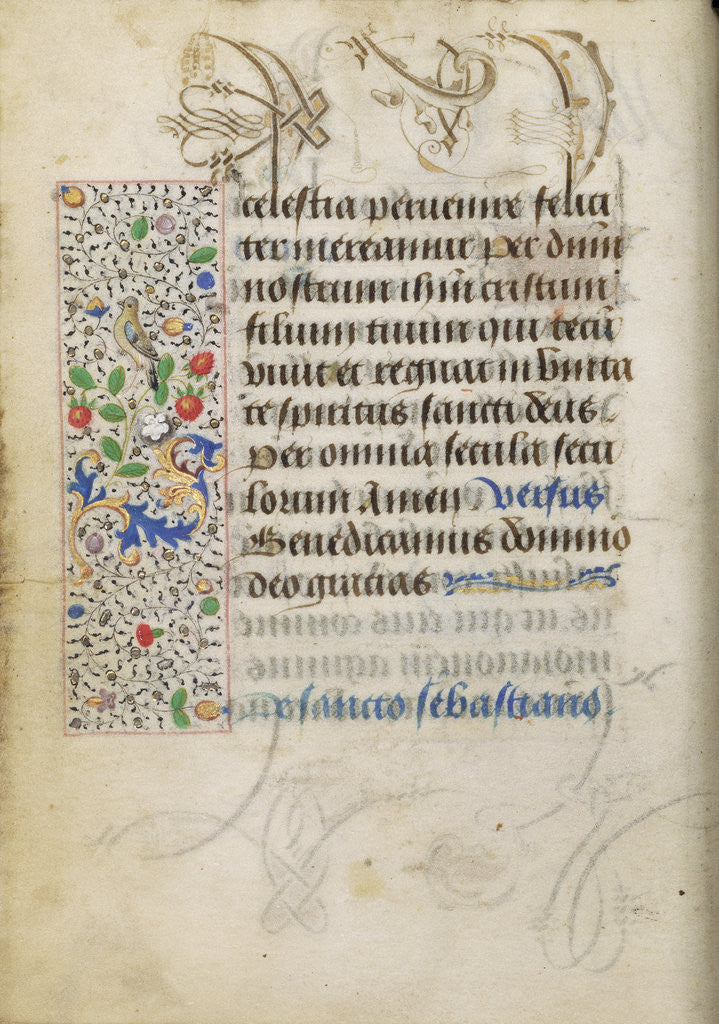 celestia peruenire felici
ter mereamur per dnm̄
nostrum ihm̄ cristum
filium tuum qui tecū
viuit et regnat in vnita
te spiritus sancti deus
Per omnia secula secu
lorum Amen Versus
Benedicamus domino
deo gracias
De sancto sebastiano